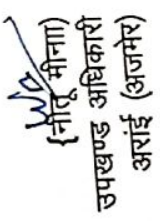 {नीतू मीना)
उपखण्ड अधिकारी
अरांई (अजमेर)